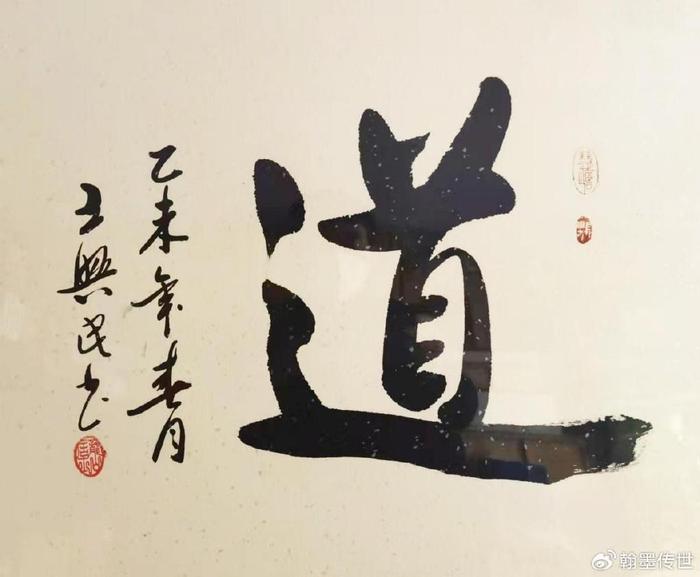 道
乙未年春月
王興民书
翰墨传世